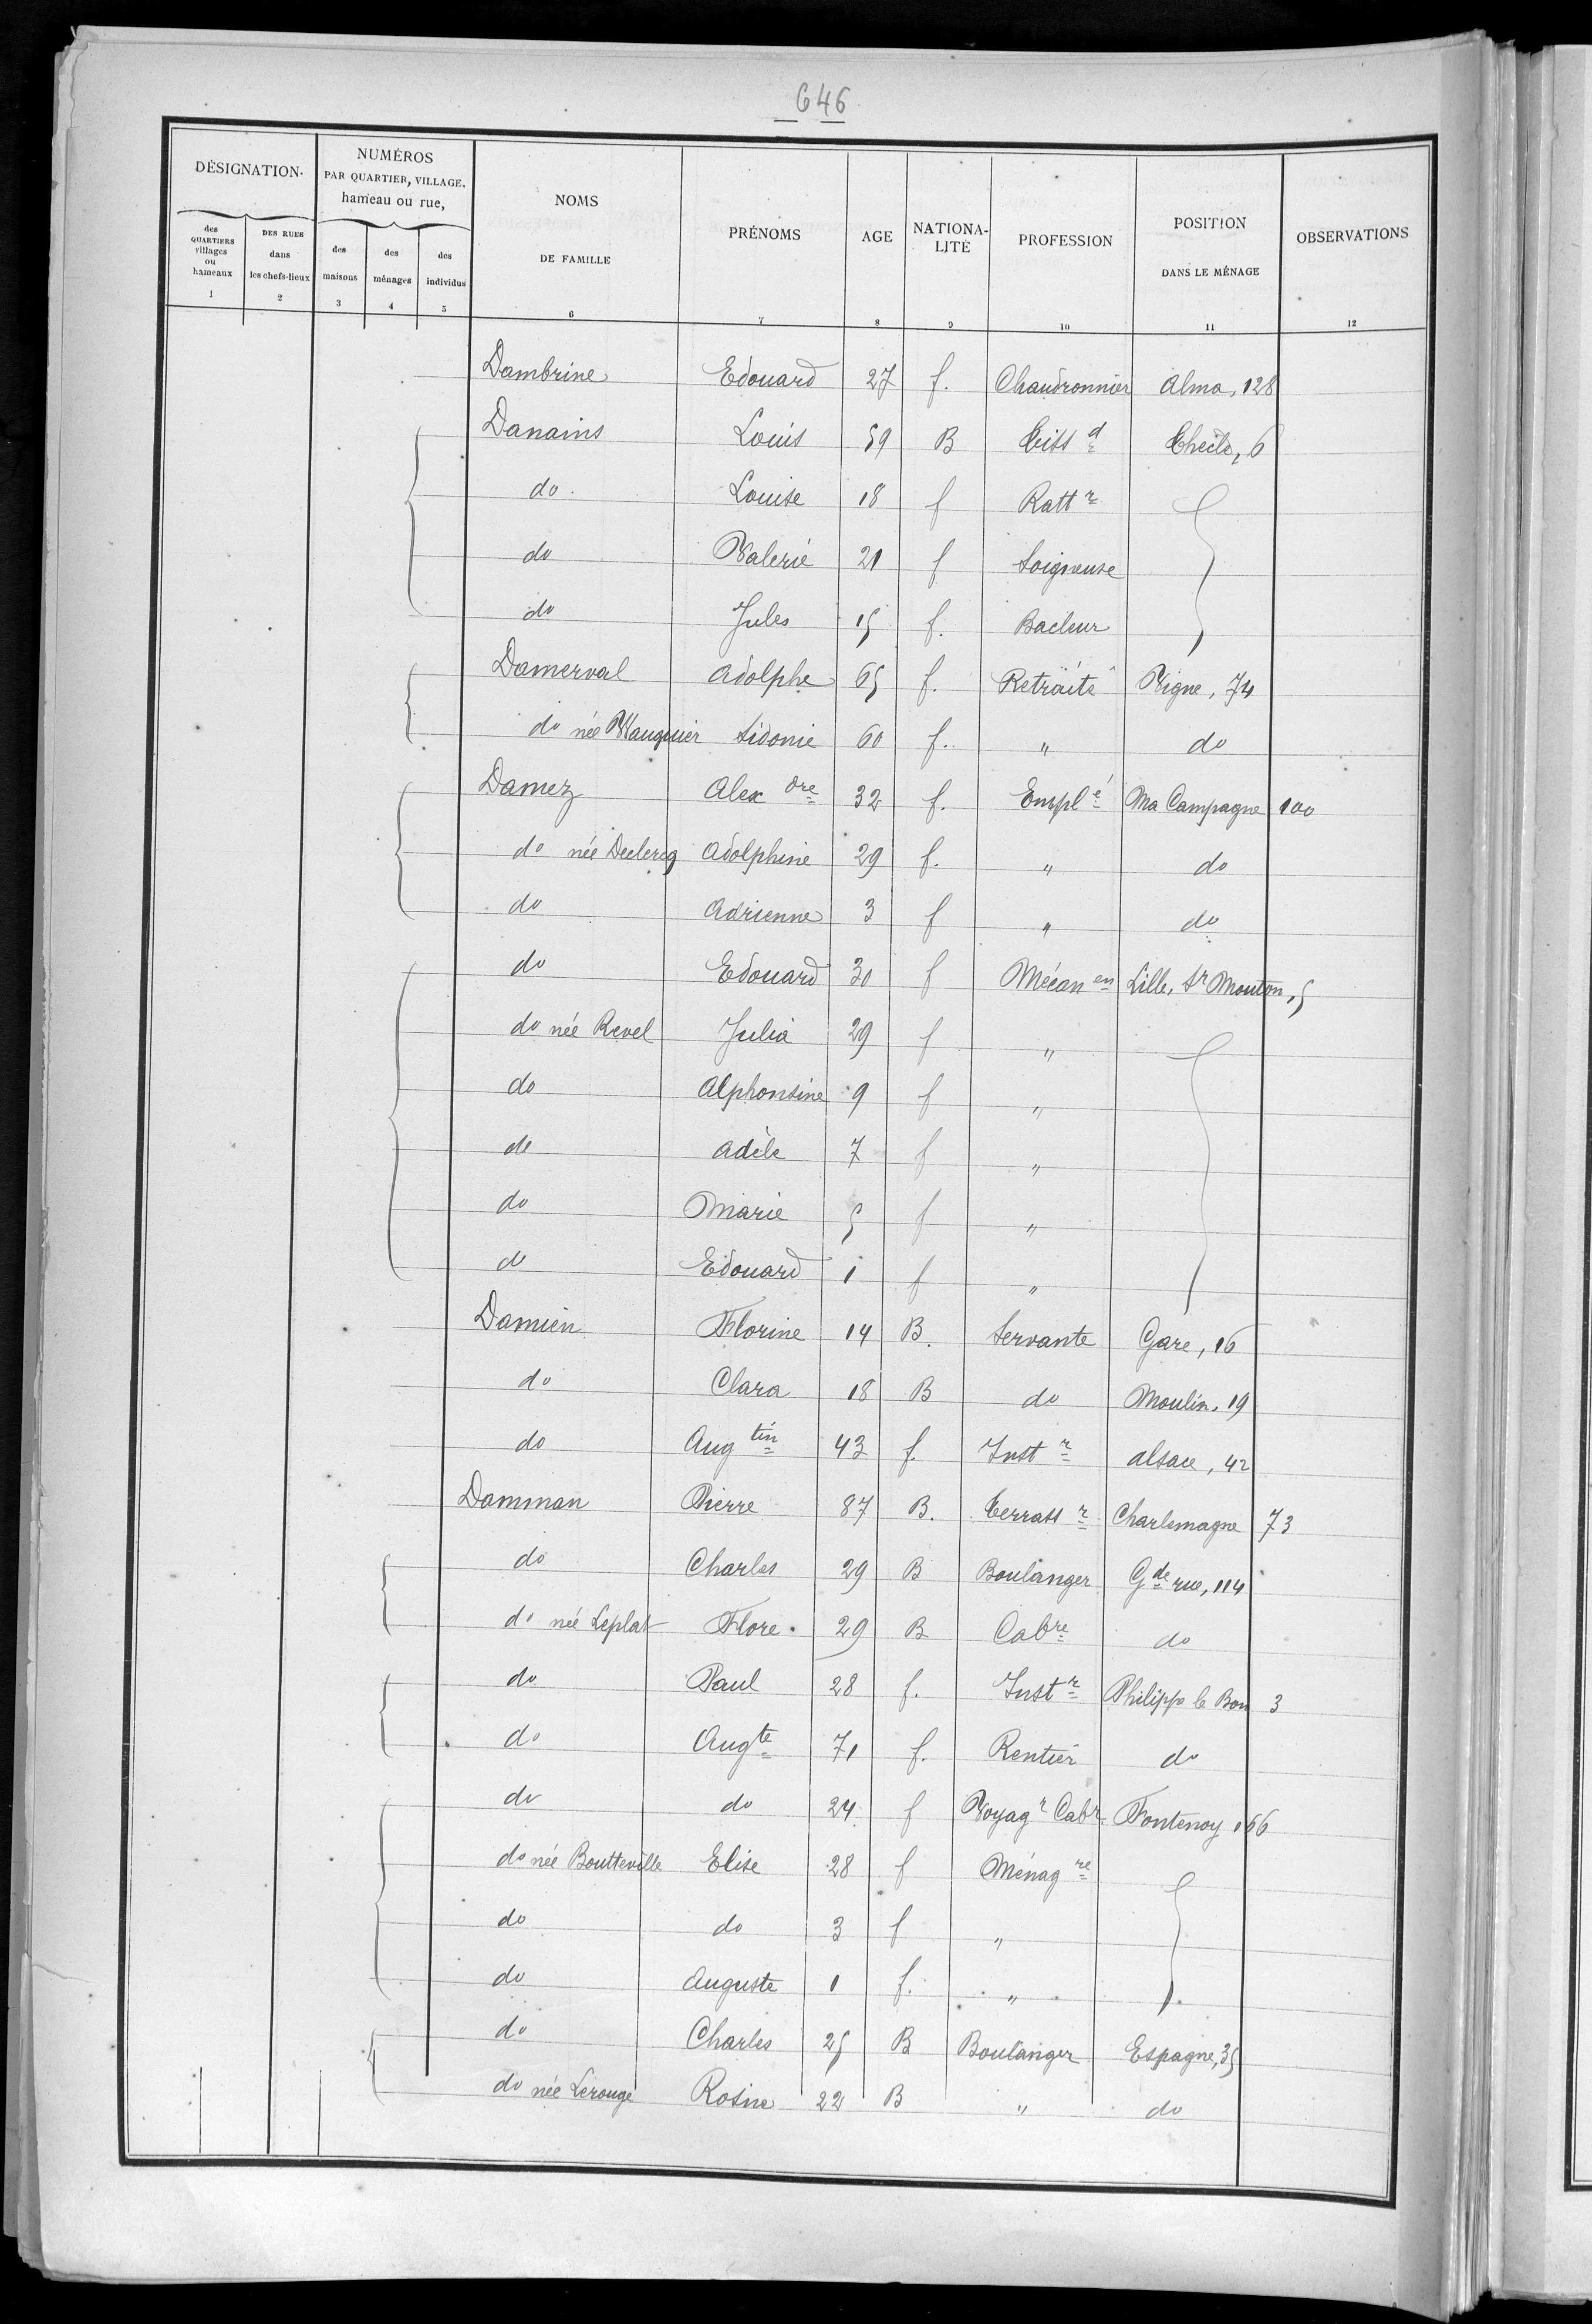 646
DÉSIGNATION.
NUMÉROS
PAR QUARTIER, VILLAGE,
hameau ou rue,
des QUARTIERS villages ou hameaux
DES RUES dans les chefs-lieux
des maisons
des ménages
des individus
NOMS DE FAMILLE
PRÉNOMS
AGE
NATIONA-LITÉ
PROFESSION
POSITION DANS LE MÉNAGE
OBSERVATIONS
1 2 3 4 5 6 7 8 9 10 11 12
Dambrine Edouard 27 f. Chaudronnier Alma, 128
Danains Louis 59 B Tiss d Thècle, 6
do Louise 18 fRatt r
do Valerie 21 f Soigneuse
do Jules 15 f. Bacleur
Damerval Adolphe 65 f. Retraité Vigne, 74
do née Wauquier Sidonie 60 f. " do
Damez Alex dre 32 f. Empl é Ma Campagne 100
do née Declercq Adolphine 29 f. " do
do Adrienne 3 f " do
do Edouard 30 f Mécan en Lille, fr Mouton, 5
do née Revel Julia 29 f "
do Alphonsine 9 f "
do Adèle 7 f "
do Marie 5 f "
do Edouard 1 f "
Damien Florine 14 B. Servante Gare, 16
do Clara 18 B do Moulin, 19
do Aug tin 43 f. Inst r Alsace, 42
Damman Pierre 87 B. Terrass r Charlemagne 73
do Charles 29 B Boulanger Gde rue, 114
do née Leplat Flore 29 B Cabre do
do Paul 28 f. Inst r Philippe le Bon 3
do Augte 71 f. Rentier do
do do 24 f Voyag r Cabr Fontenoy 166
do née Boutteville Elise 28 f Ménag re
do do 3 f "
do Auguste 1 f. "
do Charles 25 B Boulanger Espagne, 35
do née Lerouge Rosine 22 B " do